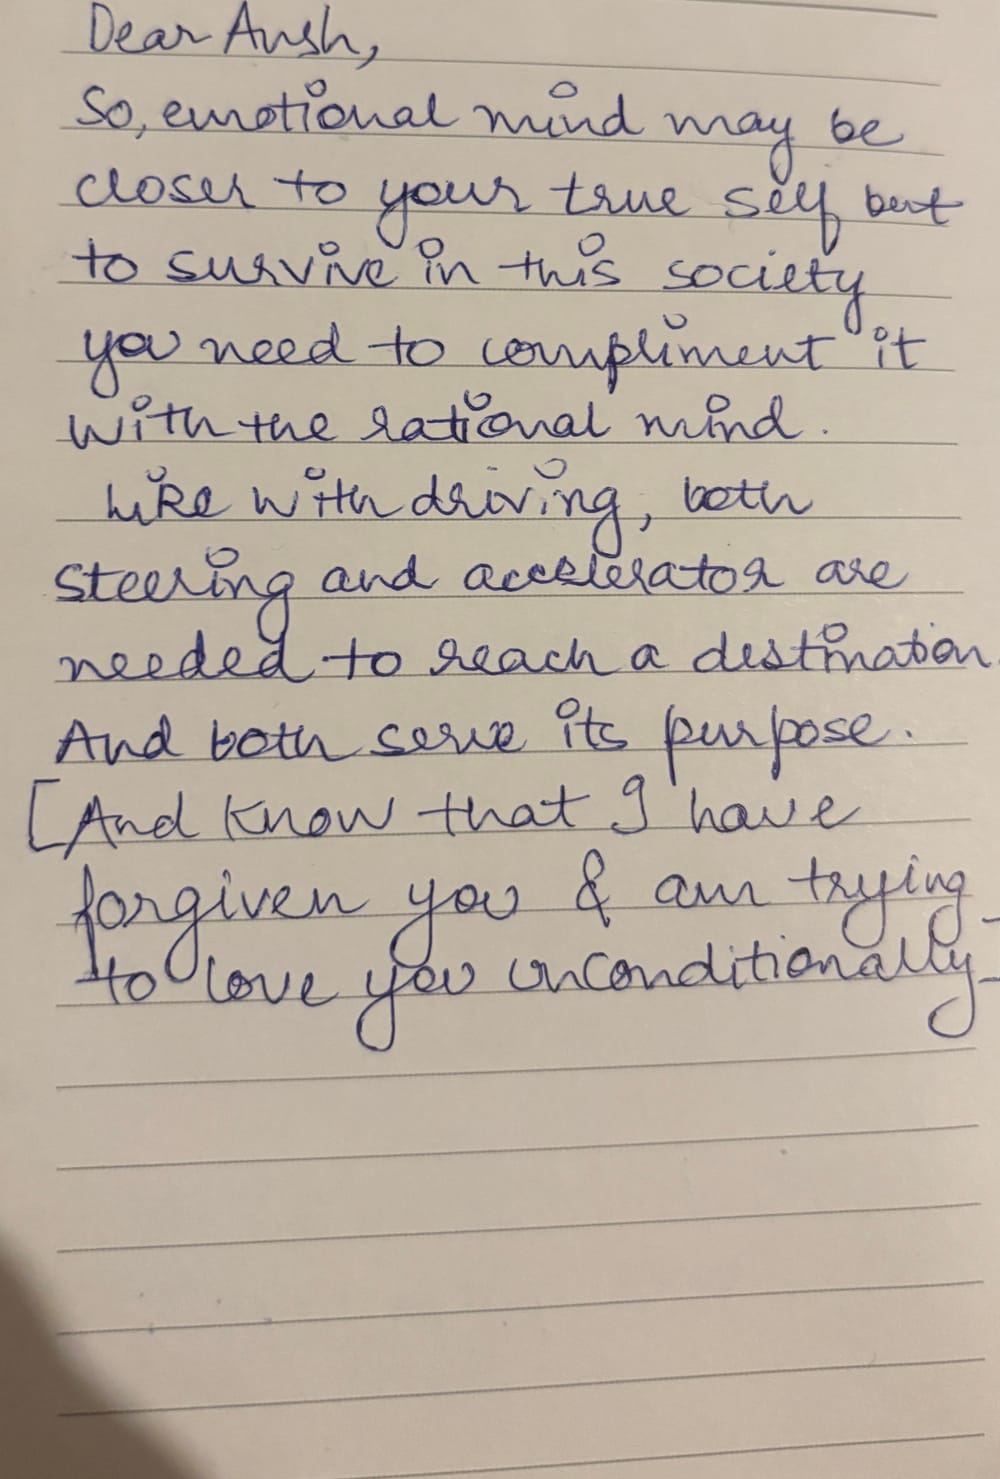 Dear Ansh,
So, emotional mind may be
closer to your true self but
to survive in this society
you need to compliment it
with the rational mind.
Like with driving, both
steering and accelerator are
needed to reach a destination.
And both serve its purpose.
[And know that I have
forgiven you & am trying
to love you unconditionally